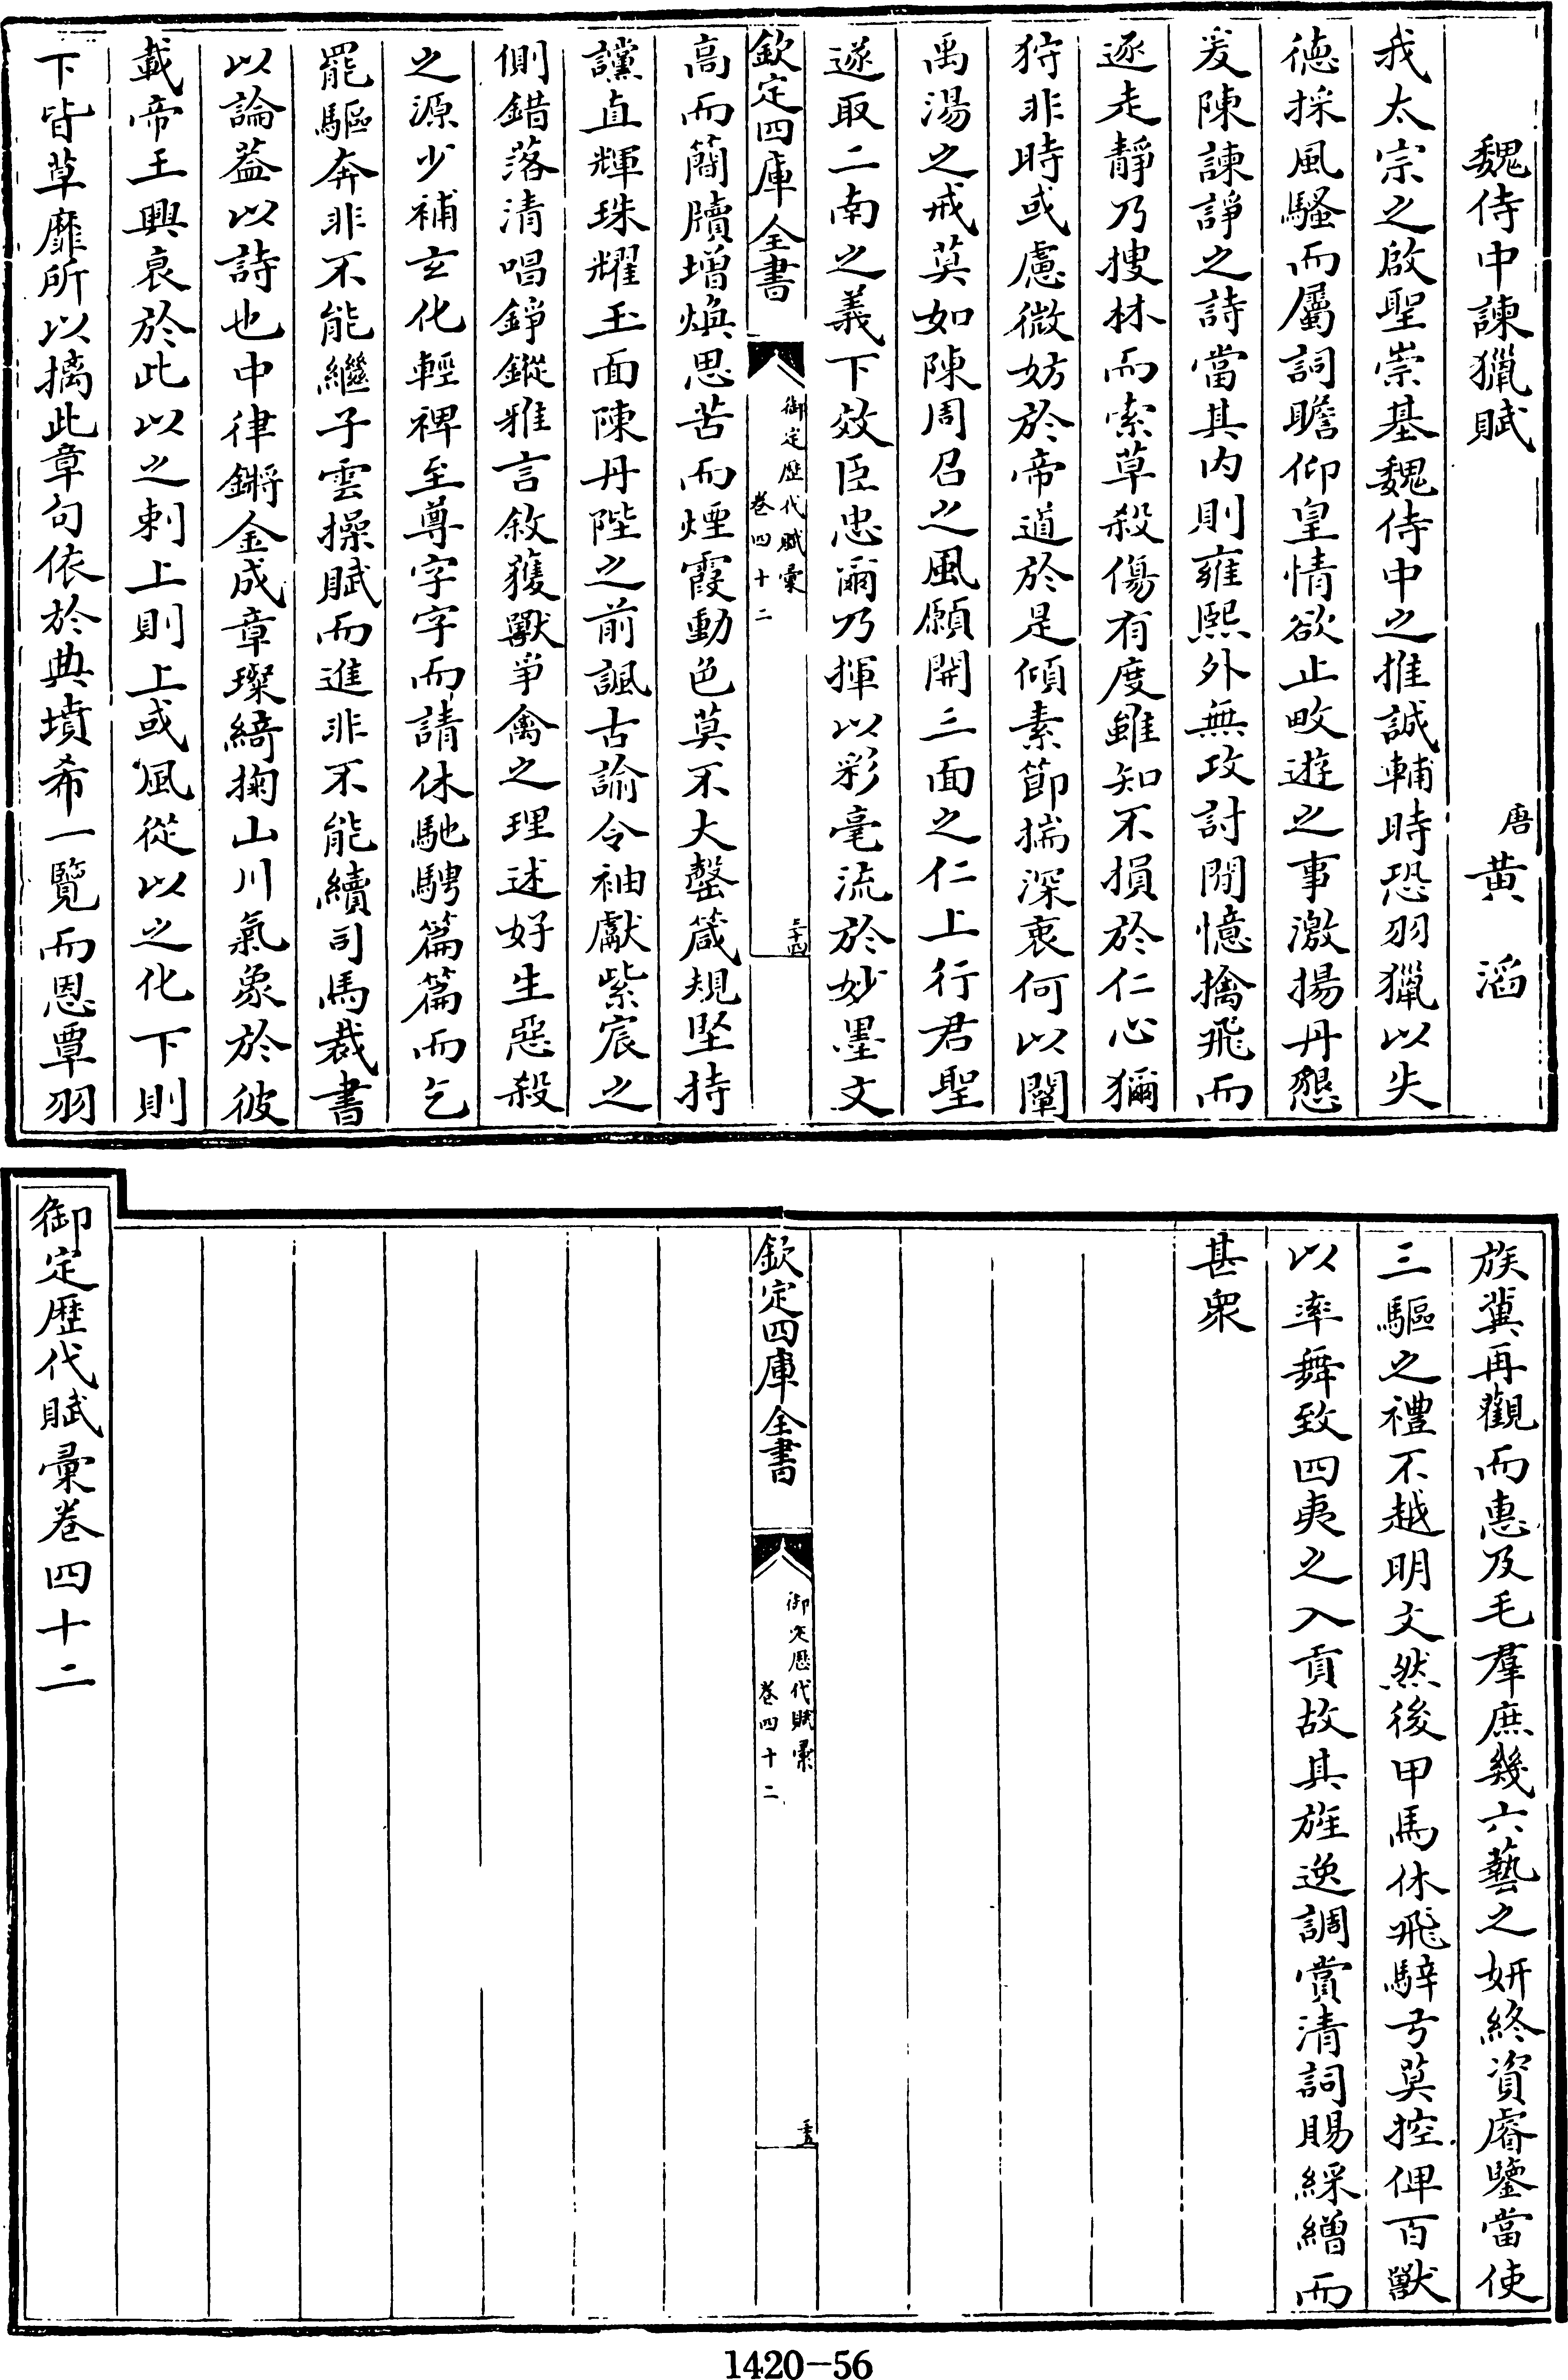 魏侍中諫獵賦
唐黃滔
我太宗之啟聖崇基魏侍中之推誠輔時恐羽獵以失
德採風騷而屬詞瞻仰皇情欲止畋遊之事激揚丹懇
爰陳諫諍之詩當其內則雍熙外無攻討閒憶擒飛而
逐走靜乃搜林而索草殺傷有度雖知不損於仁心獮
狩非時或慮微妨於帝道於是傾素節揣深衷何以闡
禹湯之戒莫如陳周召之風願開三面之仁上行君聖
遂取二南之義下效臣忠爾乃揮以彩毫流於妙墨文
欽定四庫全書
御定歷代賦彙
卷四十二
三十四
高而簡牘增煥思苦而煙霞動色莫不大罄箴規堅持
讜直輝珠耀玉面陳丹陛之前諷古諭今袖獻紫宸之
側錯落清唱錚鏦雅言敘獲獸爭禽之理述好生惡殺
之源少補玄化輕裨至尊字字而請休馳騁篇篇而乞
罷驅奔非不能繼子雲操賦而進非不能續司馬裁書
以論蓋以詩也中律鏘金成章璨綺掬山川氣象於彼
載帝王興衰於此以之刺上則上或風從以之化下則
下皆草靡所以摛此章句依於典墳希一覽而恩覃羽
族冀再觀而惠及毛羣庶幾六藝之妍終資睿鑒當使
三驅之禮不越明文然後甲馬休飛騂弓莫控俾百獸
以率舞致四夷之入貢故其旌逸調賞清詞賜綵繒而
甚衆
欽定四庫全書
御定歷代賦彙
卷四十二
三十五
御定歷代賦彙卷四十二
1420-56